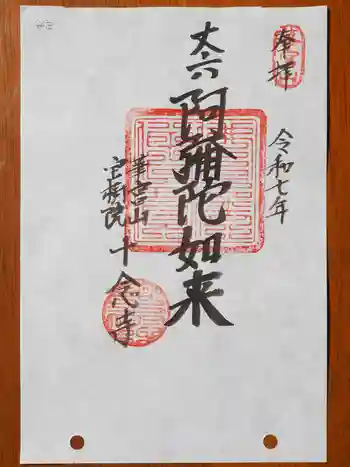 奉拝
令和七年
丈六
阿彌陀如来
華宮山
宝樹院
十念寺